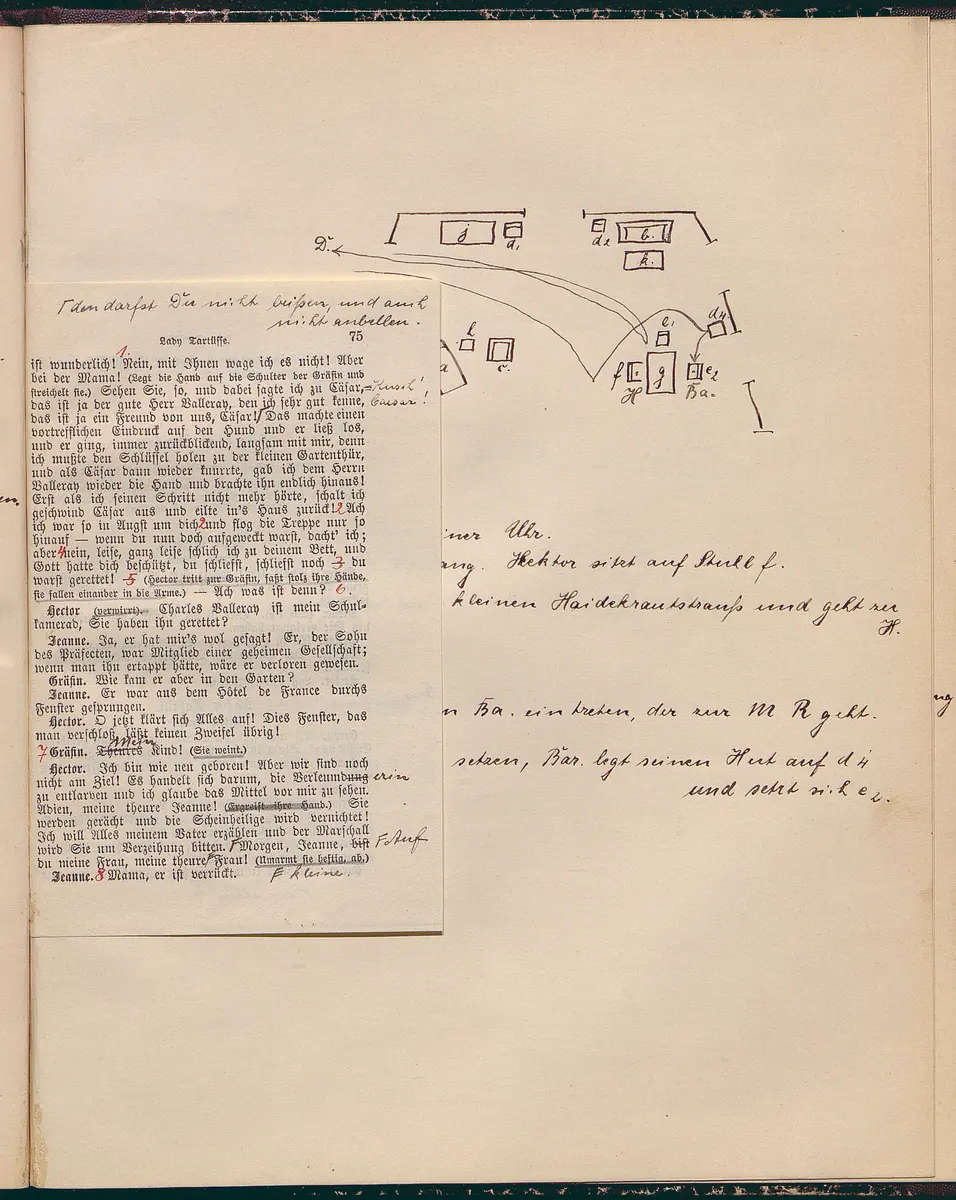 D.
j
d1
d2
b.
k.
l
c.
a
e1
d4
f
g
e2
H
Ba.
den darfst Du nicht beißen, und auch
nicht anbellen.
Lady Tartüffe. 75
1.
ist wunderlich! Nein, mit Ihnen wage ich es nicht! Aber
bei der Mama! (Legt die Hand auf die Schulter der Gräfin und
streichelt sie.) Sehen Sie, so, und dabei sagte ich zu Cäsar, Kusch!
das ist ja der gute Herr Valleray, den ich sehr gut kenne, Caesar!
das ist ja ein Freund von uns, Cäsar! Das machte einen
vortrefflichen Eindruck auf den Hund und er ließ los,
und er ging, immer zurückblickend, langsam mit mir, denn
ich mußte den Schlüssel holen zu der kleinen Gartenthür,
und als Cäsar dann wieder knurrte, gab ich dem Herrn
Valleray wieder die Hand und brachte ihn endlich hinaus!
Erst als ich seinen Schritt nicht mehr hörte, schalt ich
geschwind Cäsar aus und eilte in's Haus zurück! 2 Ach
ich war so in Angst um dich 2 und flog die Treppe nur so
hinauf — wenn du nun doch aufgeweckt warst, dacht' ich;
aber 4 nein, leise, ganz leise schlich ich zu deinem Bett, und
Gott hatte dich beschützt, du schliefst, schliefst noch 3 du
warst gerettet! 5 (Hector tritt zur Gräfin, faßt stolz ihre Hände,
sie fallen einander in die Arme.) — Ach was ist denn? 6.
Hector (verwirrt). Charles Valleray ist mein Schul-
kamerad, Sie haben ihn gerettet?
Jeanne. Ja, er hat mir's wol gesagt! Er, der Sohn
des Präfecten, war Mitglied einer geheimen Gesellschaft;
wenn man ihn ertappt hätte, wäre er verloren gewesen.
Gräfin. Wie kam er aber in den Garten?
Jeanne. Er war aus dem Hôtel de France durchs
Fenster gesprungen.
Hector. O jetzt klärt sich Alles auf! Dies Fenster, das
man verschloß, läßt keinen Zweifel übrig!
mein
7 Gräfin. Theures Kind! (Sie weint.)
Hector. Ich bin wie neu geboren! Aber wir sind noch
nicht am Ziel! Es handelt sich darum, die Verleumdung erin
zu entlarven und ich glaube das Mittel vor mir zu sehen.
Adien, meine theure Jeanne! (Ergreift ihre Hand.) Sie
werden gerächt und die Scheinheilige wird vernichtet!
Ich will Alles meinem Vater erzählen und der Marschall
wird Sie um Verzeihung bitten. Morgen, Jeanne, bist Auf
du meine Frau, meine theure Frau! (Umarmt sie heftig, ab.)
Jeanne. 8 Mama, er ist verrückt. kleine.
iner Uhr.
ang. Hektor sitzt auf Stuhl f.
kleinen Haidekrautstrauß und geht zu
H.
n Ba. eintreten, der zur M R geht.
setzen, Bar. legt seinen Hut auf d4
und setzt sich e2.
en.
ng